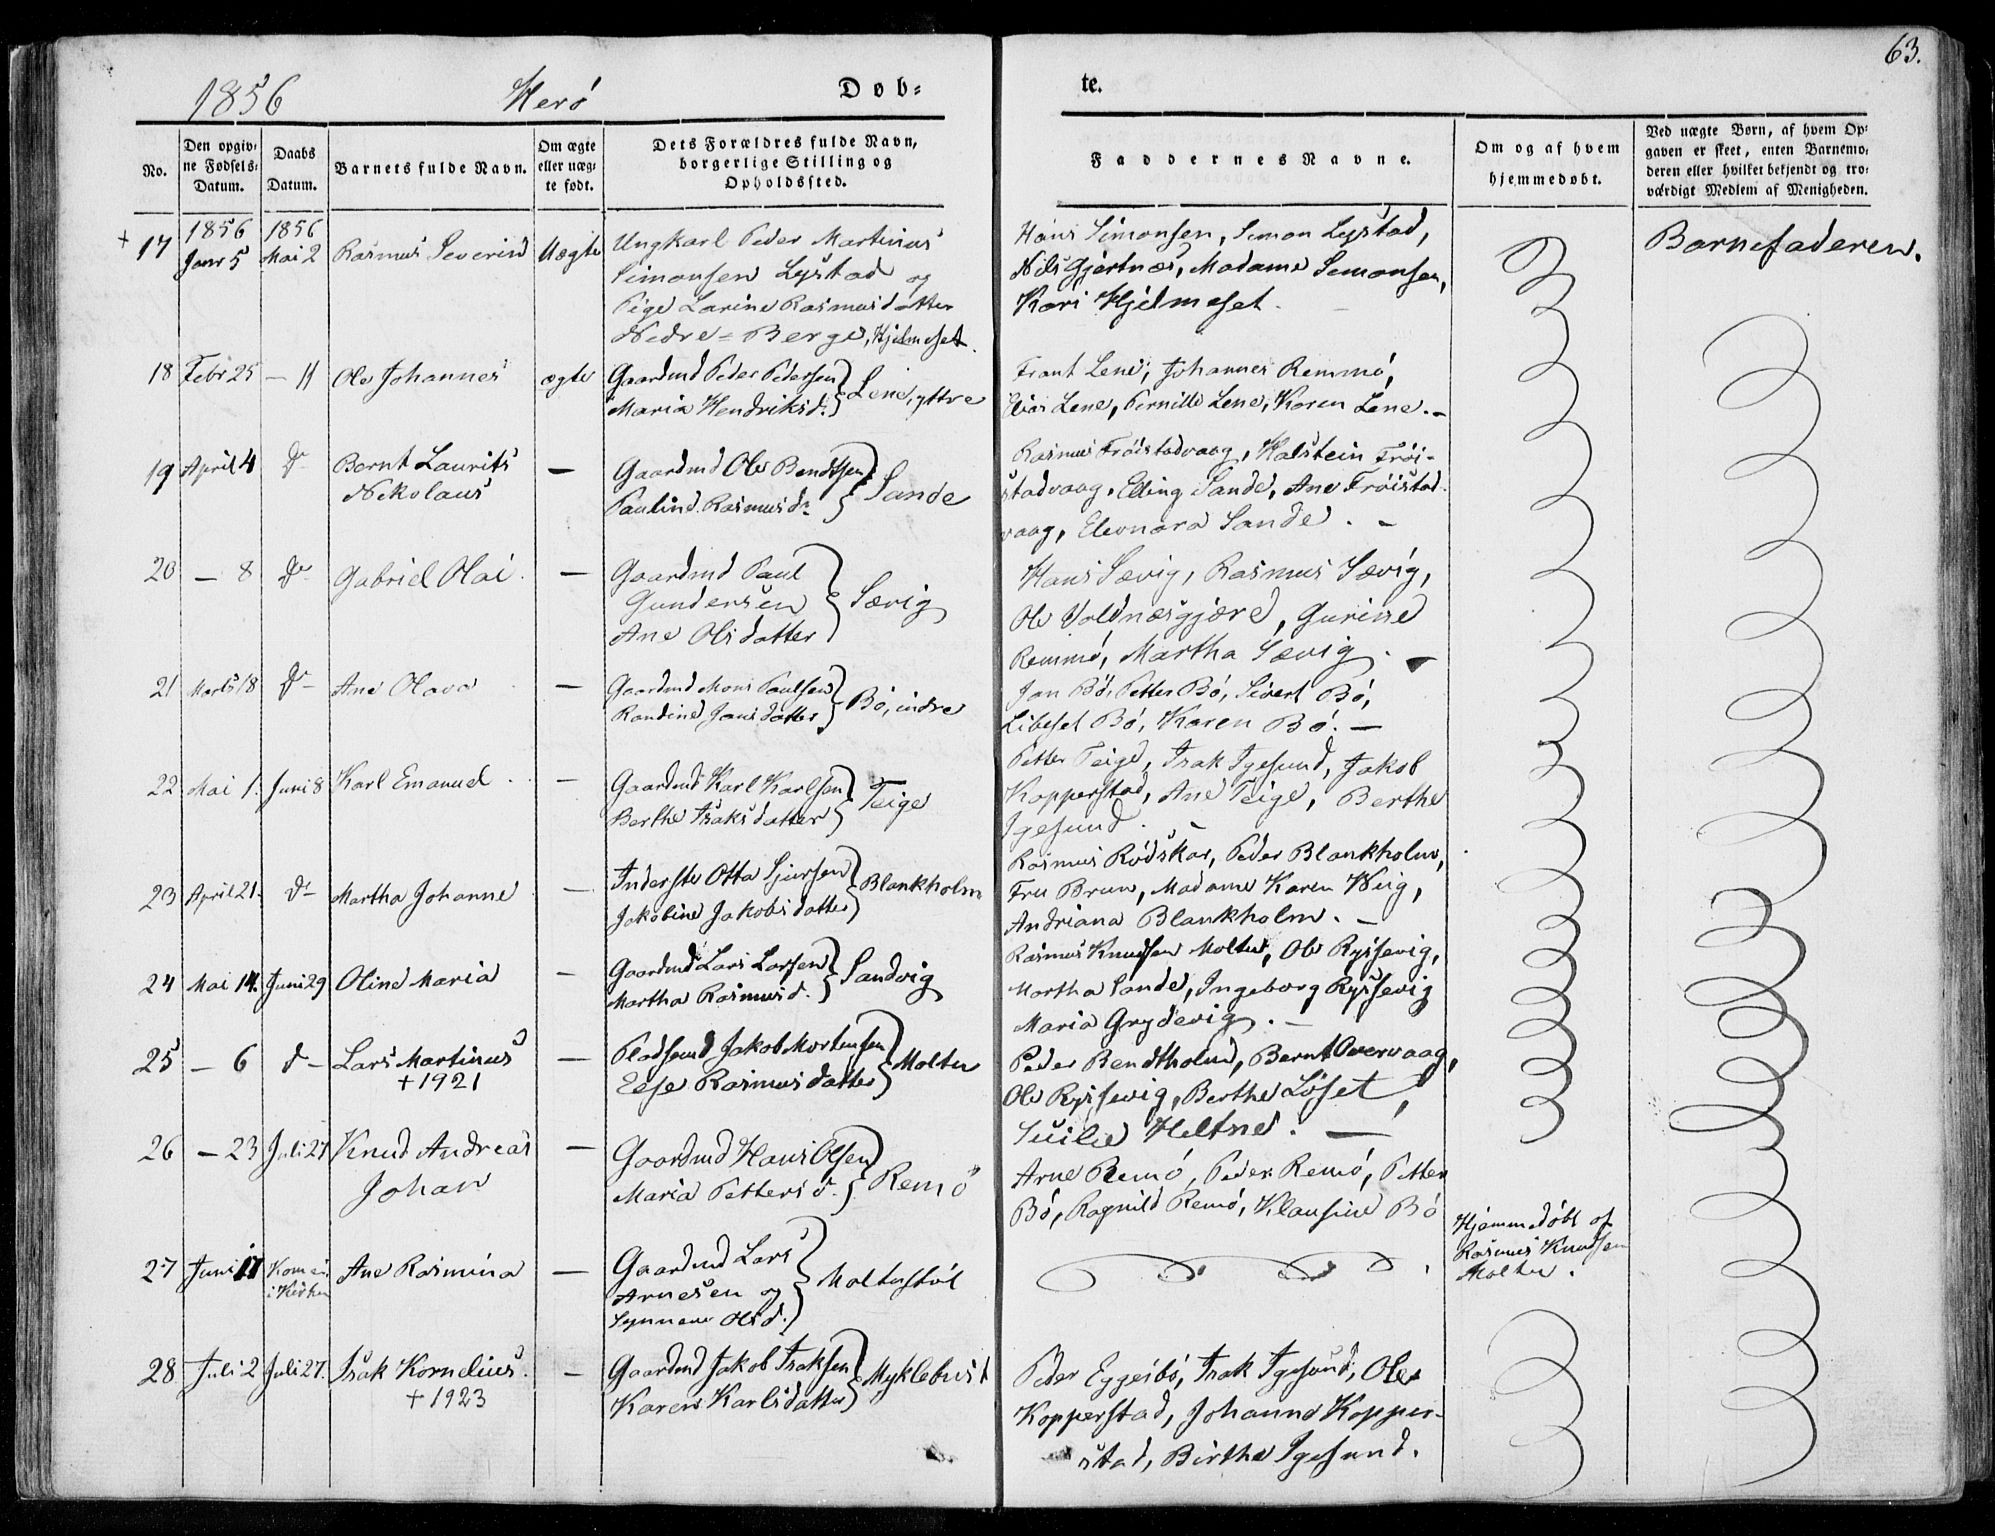 63.
1856 Herö Døb-
te.
No.
Den opgiv-
ne Fødsels-
Datum.
Daabs
Datum.
Barnets fulde Navn.
Om ægte
eller uæg-
te født.
Dets Forældres fulde Navn,
borgerlige Stilling og
Opholdssted.
Faddernes Navne.
Om og af hvem
hjemmedøbt.
Ved uægte Børn, af hvem Op-
gaven er skeet, enten Barnemo-
deren eller hvilket bekjendt og tro-
værdigt Medlem af Menigheden.
+ 17
1856
Janr 5
1856
Mai 2
Rasmus Severin
Uægte
Ungkarl Peder Martinus
Simonsen Lystad og
Pige Larine Rasmusdatter
Nedre-Berge, Hjelmeset.
Hans Simonsen, Simon Lystad,
Nils Gjertnæs, Madame Simonsen,
Kari Hjelmeset.
Barnefaderen.
18 Febr 25 — 11 Ole Johannes ægte
Gaardmd Peder Pedersen
Maria Hendriksd.
Lene, yttre
Frant Lene, Johannes Remmö,
Elias Lene, Pernille Lene, Karen Lene. –
19 April 4 do Bernt Laurits
Nikolaus
—
Gaardmd Ole Bendtsen
Pauline Rasmusdr
Sande
Rasmus Fröistadvaag, Halstein Fröi-
stadvaag, Elling Sande, Ane Fröistad-
vaag, Eleonora Sande. –
20 — 8 do Gabriel Olai. —
Gaardmd Paul
Gundersen
Ane Olsdatter
Sævig
Hans Sævig, Rasmus Sævig,
Ole Voldnæsgjære, Gurine
Remmö, Martha Sævig. –
21 Marts 18 do Ane Olava —
Gaardmd Mons Paulsen
Randine Jansdatter
Bö, indre
Jan Bö, Petter Bö, Sivert Bö,
Libeset Bö, Karen Bö. –
22 Mai 1. Juni 8 Karl Emanuel. —
Gaardmd Karl Karlsen
Berthe Isaksdatter
Teige
Petter Teige, Isak Igesund, Jakob
Kopperstad, Ane Teige, Berthe
Igesund.
23 April 21. do Martha Johanne —
Inderste Otta Sjursen
Jakobine Jakobsdatter
Blankholm
Rasmus Rödskar, Peder Blankholm,
Fru Brun, Madame Karen Weig,
Andriana Blankholm. –
24 Mai 14. Juni 29 Oline Maria —
Gaardmd Lars Larsen
Martha Rasmusd.
Sandvig
Rasmus Knudsen Moltu, Ole Ryssevig,
Martha Sande, Ingeborg Ryssevig
Maria Grydevig. –
25 — 6 d– Lars Martinus
+ 1921
—
Pladsmd Jakob Mortensen
Else Rasmusdatter
Moltu
Peder Bendtholm, Bernt Overvaag,
Ole Ryssevig, Berthe Löset,
Sicilie Heltne. –
26 — 23 Juli 27 Knud Andreas
Johan
—
Gaardmd Hans Olsen
Maria Pettersd.
Remö
Arne Remö, Peder Remö, Petter
Bö, Ragnild Remö, Klausine Bö
27 Juni 17 Kom ei
i Kirken
Ane Rasmina —
Gaardmd Lars
Arnesen og
Synneve Olsd.
Moltustöl
Hjemmedöbt af
Rasmus Knudsen
Moltu.
28 Juli 2 Juli 27. Isak Kornelius.
+ 1923
—
Gaardmd Jakob Isaksen
Karen Karlsdatter
Myklebust
Peder Eggesbö, Isak Igesund, Ole
Kopperstad, Johanne Kopper-
stad, Birthe Igesund.